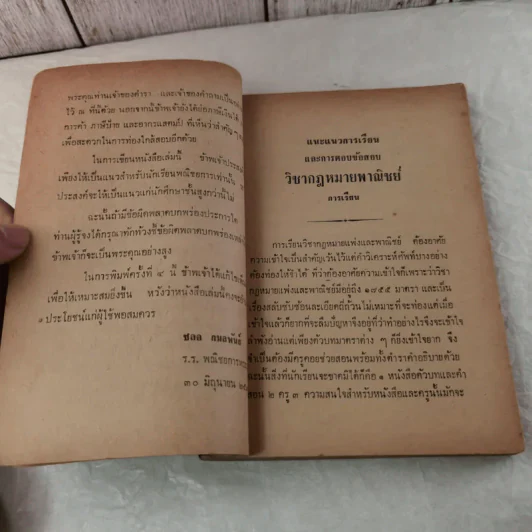 พระคุณท่านเจ้าของตำรา และเจ้าของคำถาม
ไว้ ณ ที่นี้ด้วย นอกจากนี้ข้าพเจ้ายังได้ย่อภาษีเงินได้
การค้า ภาษีป้าย และอากรแสตมป์ ที่เห็นว่าสำคัญ ๆ
เพื่อสะดวกในการท่องใกล้สอบอีกด้วย
ในการเขียนหนังสือเล่มนี้ ข้าพเจ้า
เพียงให้เป็นแนวสำหรับนักเรียนพณิชยการเท่านั้น
ประสงค์จะให้เป็นแนวแก่นักศึกษาชั้นสูงกว่านี้ไม่
ฉะนั้นถ้ามีข้อผิดพลาดบกพร่องประการใด
ท่านผู้รู้จงได้กรุณาทักท้วงชี้ข้อผิดพลาดบกพร่อง
ข้าพเจ้าก็จะเป็นพระคุณอย่างสูง
ในการพิมพ์ครั้งที่ ๔ นี้ ข้าพเจ้าได้แก้ไข
เพื่อให้เหมาะสมยิ่งขึ้น หวังว่าหนังสือเล่มนี้คงจะ
ประโยชน์แก่ผู้ใช้พอสมควร
ร.ร. พณิชยการ
๓๐ มิถุนายน
แนะแนวการเรียน
และการตอบข้อสอบ
วิชากฎหมายพาณิชย์
การเรียน
การเรียนวิชากฎหมายแพ่งและพาณิชย์ ต้องอาศัย
ความเข้าใจเป็นสำคัญเว้นไว้แต่คำวิเคราะห์ศัพท์บางอย่าง
ต้องท่องให้จำได้ ที่ว่าต้องอาศัยความเข้าใจก็เพราะว่าวิชา
กฎหมายแพ่งและพาณิชย์มีอยู่ถึง ๑๗๕๕ มาตรา และเป็น
เรื่องสลับซับซ้อนละเอียดถี่ถ้วนไม่เหมาะที่จะท่องแต่เมื่อ
เข้าใจแล้วก็ยากที่จะลืมปัญหาจึงอยู่ที่ว่าทำอย่างไรจึงจะเข้าใจ
ลำพังอ่านแต่เพียงตัวบทมาตราต่าง ๆ ก็ยังเข้าใจยาก จึง
จำเป็นต้องมีครูคอยช่วยสอนพร้อมทั้งตำราคำอธิบายด้วย
ฉะนั้นสิ่งที่นักเรียนจะขาดมิได้ก็คือ ๑ หนังสือตัวบทและคำ
สอน ๒ ครู ๓ ความสนใจสำหรับหนังสือและครูนั้นมักจะ